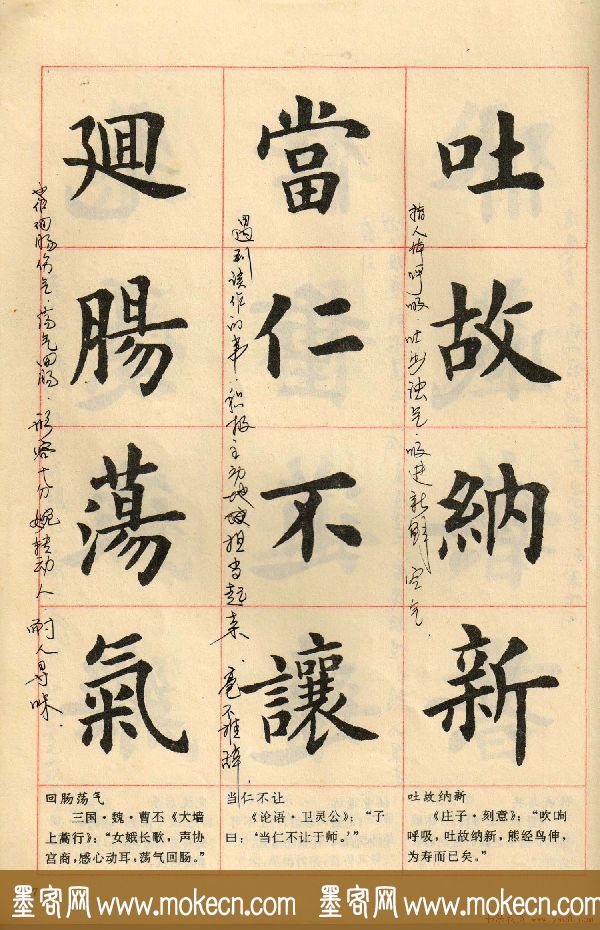 吐故納新
指人体呼吸 吐出浊气.吸进新鲜空气.
當仁不讓
遇到该作的事.积极主动地担当起来.毫不推辞.
廻腸蕩氣
也作回肠伤气.荡气回肠.形容十分婉转动人.耐人寻味.
吐故纳新
《庄子·刻意》：“吹呴
呼吸，吐故纳新，熊经鸟伸，
为寿而已矣。”
当仁不让
《论语·卫灵公》：“子
曰：‘当仁不让于师。’”
回肠荡气
三国·魏·曹丕《大墙
上蒿行》：“女娥长歌，声协
宫商，感心动耳，荡气回肠。”
墨客网 www.mokecn.com 墨客网 www.mokecn.com